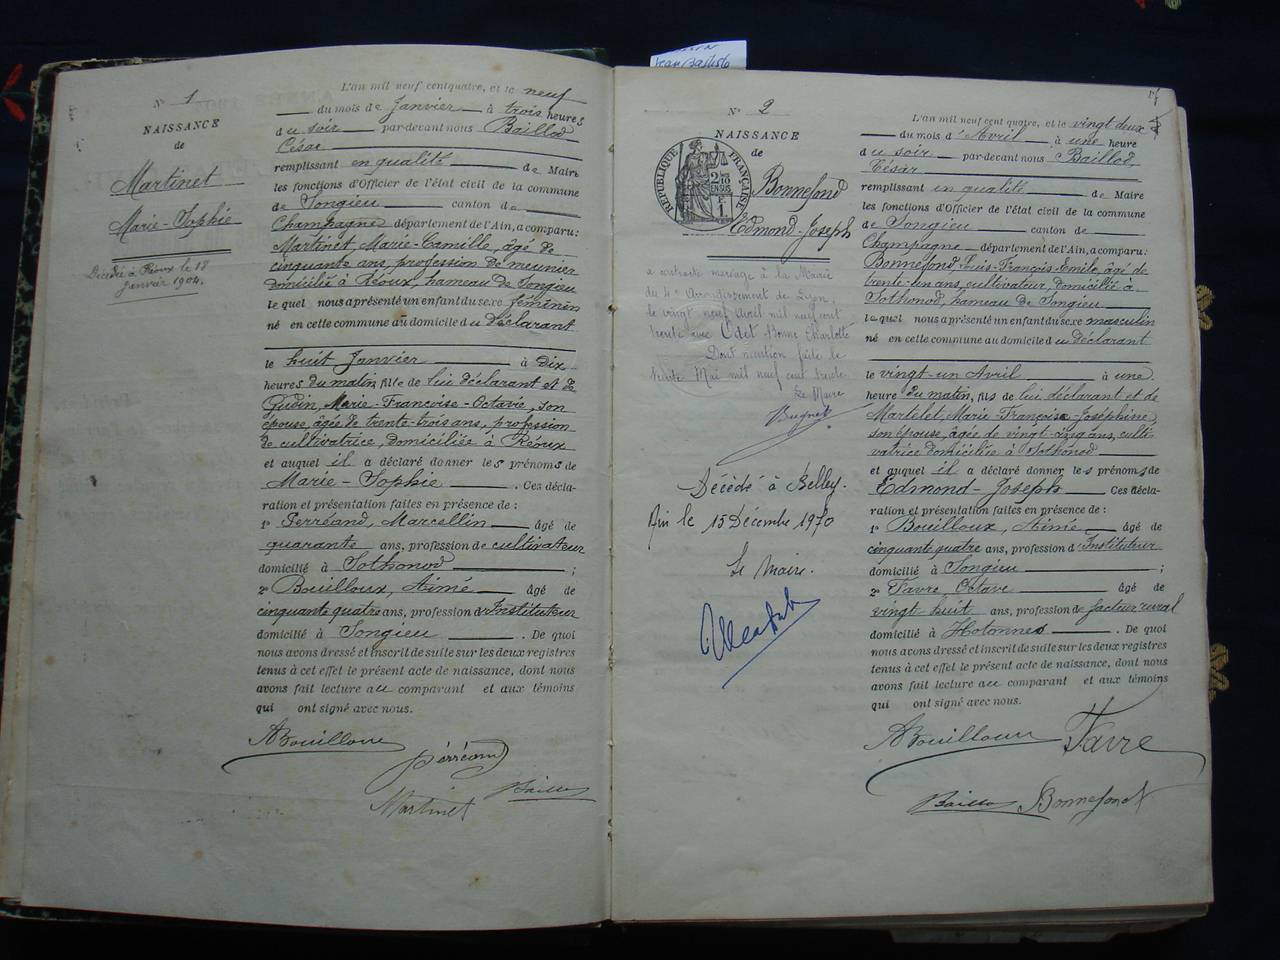 Jean Baptiste
N° 1
NAISSANCE
de
Martinet
Marie-Sophie
Décédée à Réoux le 18
Janvier 1904.
L'an mil neuf cent quatre, et le neuf
du mois de Janvier à trois heures
du soir par-devant nous Baillod
César
remplissant en qualité de Maire
les fonctions d'Officier de l'état civil de la commune
de Songieu canton de
Champagne département de l'Ain, a comparu:
Martinet Marie-Camille, âgé de
cinquante ans, profession de meunier
domicilié à Réoux, hameau de Songieu
lequel nous a présenté un enfant du sexe féminin
né en cette commune au domicile du déclarant
le huit Janvier à dix
heures du matin, fille de lui déclarant et de
Gudin, Marie-Françoise-Octavie, son
épouse, âgée de trente-trois ans, profession
de cultivatrice, domiciliée à Réoux
et auquel il a déclaré donner les prénoms de
Marie-Sophie. Ces décla-
ration et présentation faites en présence de :
1° Perréand, Marcellin âgé de
quarante ans, profession de cultivateur
domicilié à Sothonod ;
2° Bouilloux, Aimé âgé de
cinquante quatre ans, profession d'Instituteur
domicilié à Songieu. De quoi
nous avons dressé et inscrit de suite sur les deux registres
tenus à cet effet le présent acte de naissance, dont nous
avons fait lecture au comparant et aux témoins
qui ont signé avec nous.
ABouilloux
Perréand
Baillod
Martinet
N° 2
NAISSANCE
de
RÉPUBLIQUE FRANÇAISE
2/10
EN SUS
Bonnefond
Edmond-Joseph
a contracté mariage à la Mairie
du 4e Arrondissement de Lyon
le vingt neuf Avril mil neuf cent
trente avec Odet Bonne Charlotte
Dont mention faite le
trente Mai mil neuf cent trente
Le Maire
Bugnet
Décédé à Belley.
Ain le 15 Décembre 1970
Le Maire.
L'an mil neuf cent quatre, et le vingt deux
du mois d'Avril à une heure
du soir par-devant nous Baillod,
César
remplissant en qualité de Maire
les fonctions d'Officier de l'état civil de la commune
de Songieu canton de
Champagne département de l'Ain, a comparu:
Bonnefond Louis-François Emile, âgé de
trente-un ans, cultivateur, domicilié à
Sothonod, hameau de Songieu
lequel nous a présenté un enfant du sexe masculin
né en cette commune au domicile du déclarant
le vingt-un Avril à une
heure du matin, fils de lui déclarant et de
Martelet, Marie Françoise-Joséphine,
son épouse, âgée de vingt-cinq ans, culti-
vatrice domiciliée à Sothonod
et auquel il a déclaré donner les prénoms de
Edmond-Joseph Ces décla-
ration et présentation faites en présence de :
1° Bouilloux, Aimé âgé de
cinquante quatre ans, profession d'Instituteur
domicilié à Songieu ;
2° Favre Octave âgé de
vingt huit ans, profession de facteur rural
domicilié à Hotonnes. De quoi
nous avons dressé et inscrit de suite sur les deux registres
tenus à cet effet le présent acte de naissance, dont nous
avons fait lecture au comparant et aux témoins
qui ont signé avec nous.
ABouilloux Favre
Baillod Bonnefond